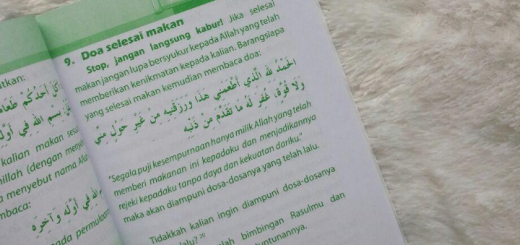 9. Doa selesai makan
Stop, jangan langsung kabur! Jika selesai
makan jangan lupa bersyukur kepada Allah yang telah
memberikan kenikmatan kepada kalian. Barangsiapa
yang selesai makan kemudian membaca doa:
الْحَمْدُ لِلَّهِ الَّذِي أَطْعَمَنِي هَذَا وَرَزَقَنِيهِ مِنْ غَيْرِ حَوْلٍ مِنِّي
وَلَا قُوَّةٍ، غُفِرَ لَهُ مَا تَقَدَّمَ مِنْ ذَنْبِهِ
"Segala puji kesempurnaan hanya milik Allah yang telah
memberi makanan ini kepadaku dan menjadikannya
rejeki kepadaku tanpa daya dan kekuatan dariku."
maka akan diampuni dosa-dosanya yang telah lalu.
Tidakkah kalian ingin diampuni dosa-dosanya
lalu?
bimbingan Rasulmu dan
tuntunannya.
tkan:
أَحَدُكُمْ طَعَامًا
بِسْمِ اللَّهِ فِي أَوَّلِهِ
kalian makan
llah (dengan
menyebut nama
mbaca:
فِي أَوَّلِهِ وَآخِرِهِ
pada permulaan